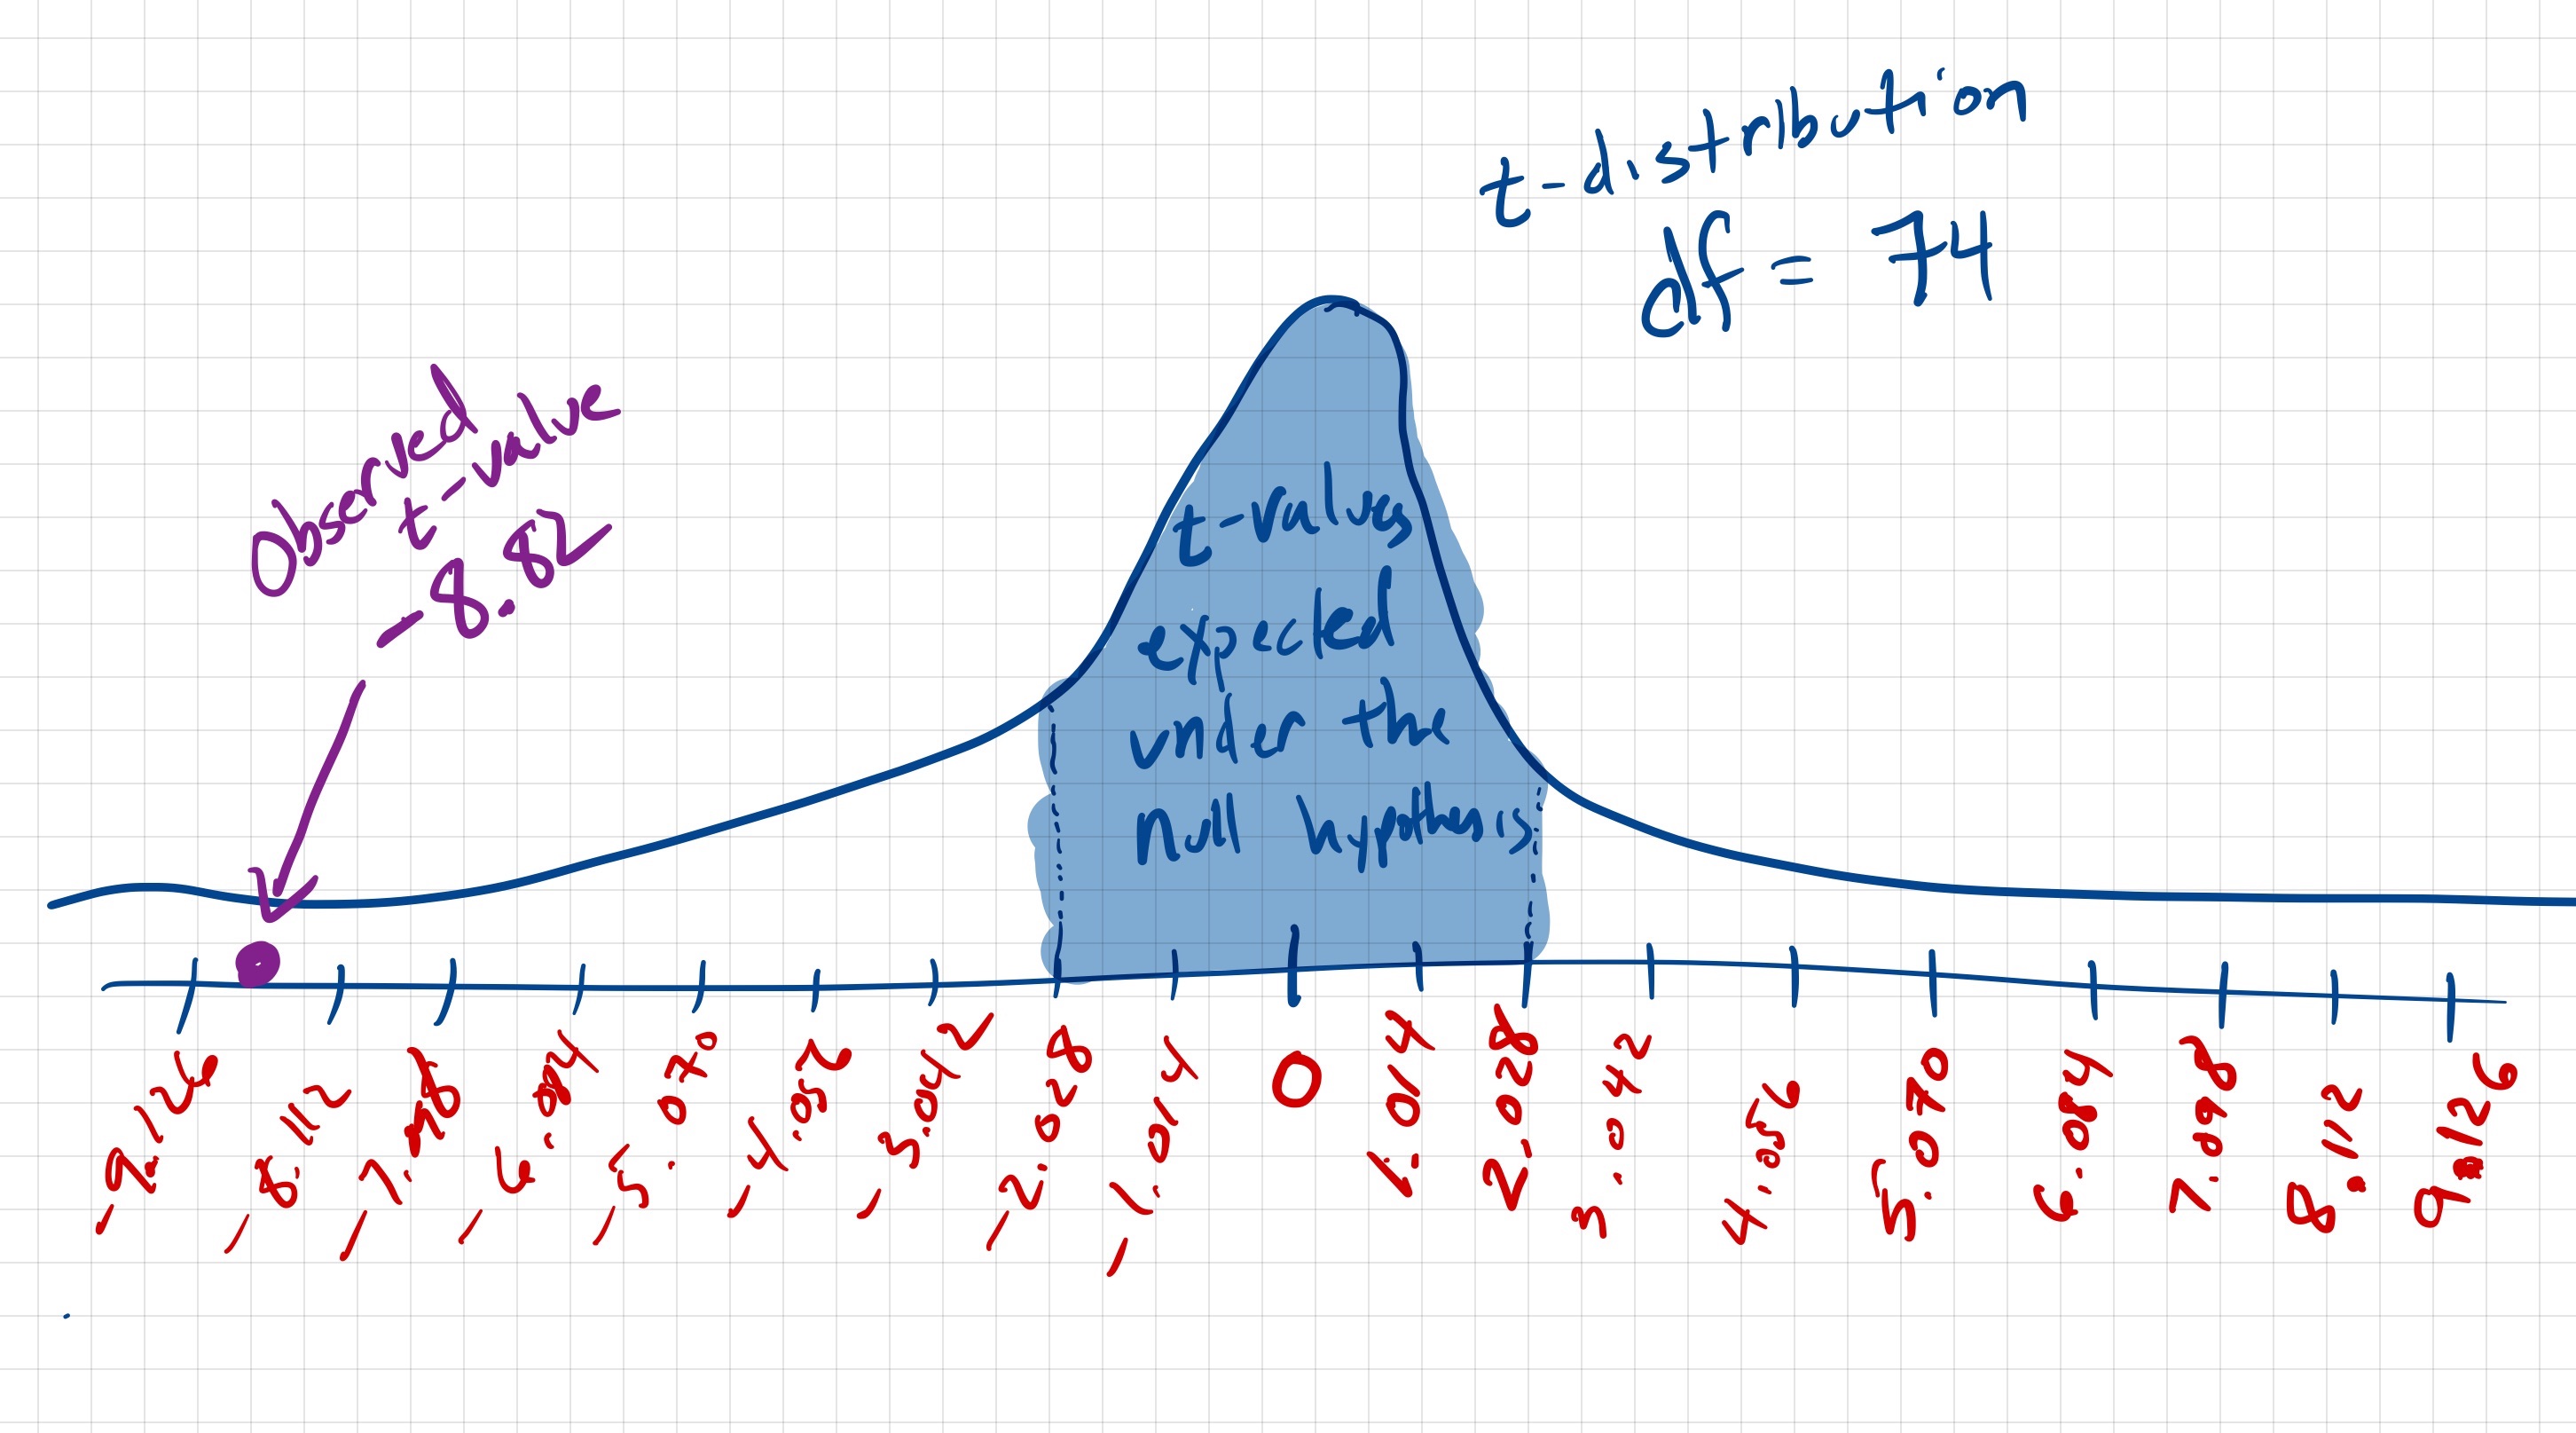 t-distribution
df = 74
Observed
t-value
-8.82
t-values
expected
under the
null hypothesis
-9.126 -8.112 -7.098 -6.084 -5.070 -4.056 -3.042 -2.028 -1.014 0 1.014 2.028 3.042 4.056 5.070 6.084 7.098 8.112 9.126